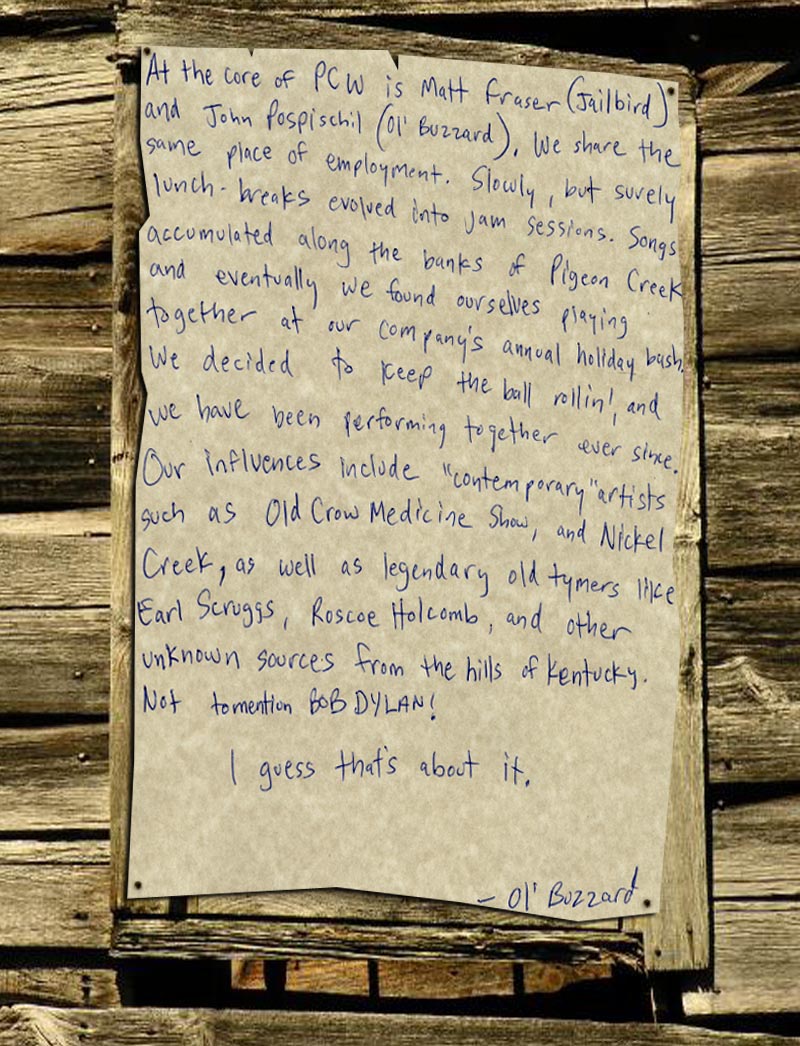 At the core of PCW is Matt Fraser (Jailbird)
and John Pospischil (Ol' Buzzard). We share the
same place of employment. Slowly, but surely
lunch-breaks evolved into jam sessions. Songs
accumulated along the banks of Pigeon Creek
and eventually we found ourselves playing
together at our company's annual holiday bash.
We decided to keep the ball rollin', and
we have been performing together ever since.
Our influences include "contemporary" artists
such as Old Crow Medicine Show, and Nickel
Creek, as well as legendary old tymers like
Earl Scruggs, Roscoe Holcomb, and other
unknown sources from the hills of Kentucky.
Not to mention BOB DYLAN!
I guess that's about it.
- Ol' Buzzard